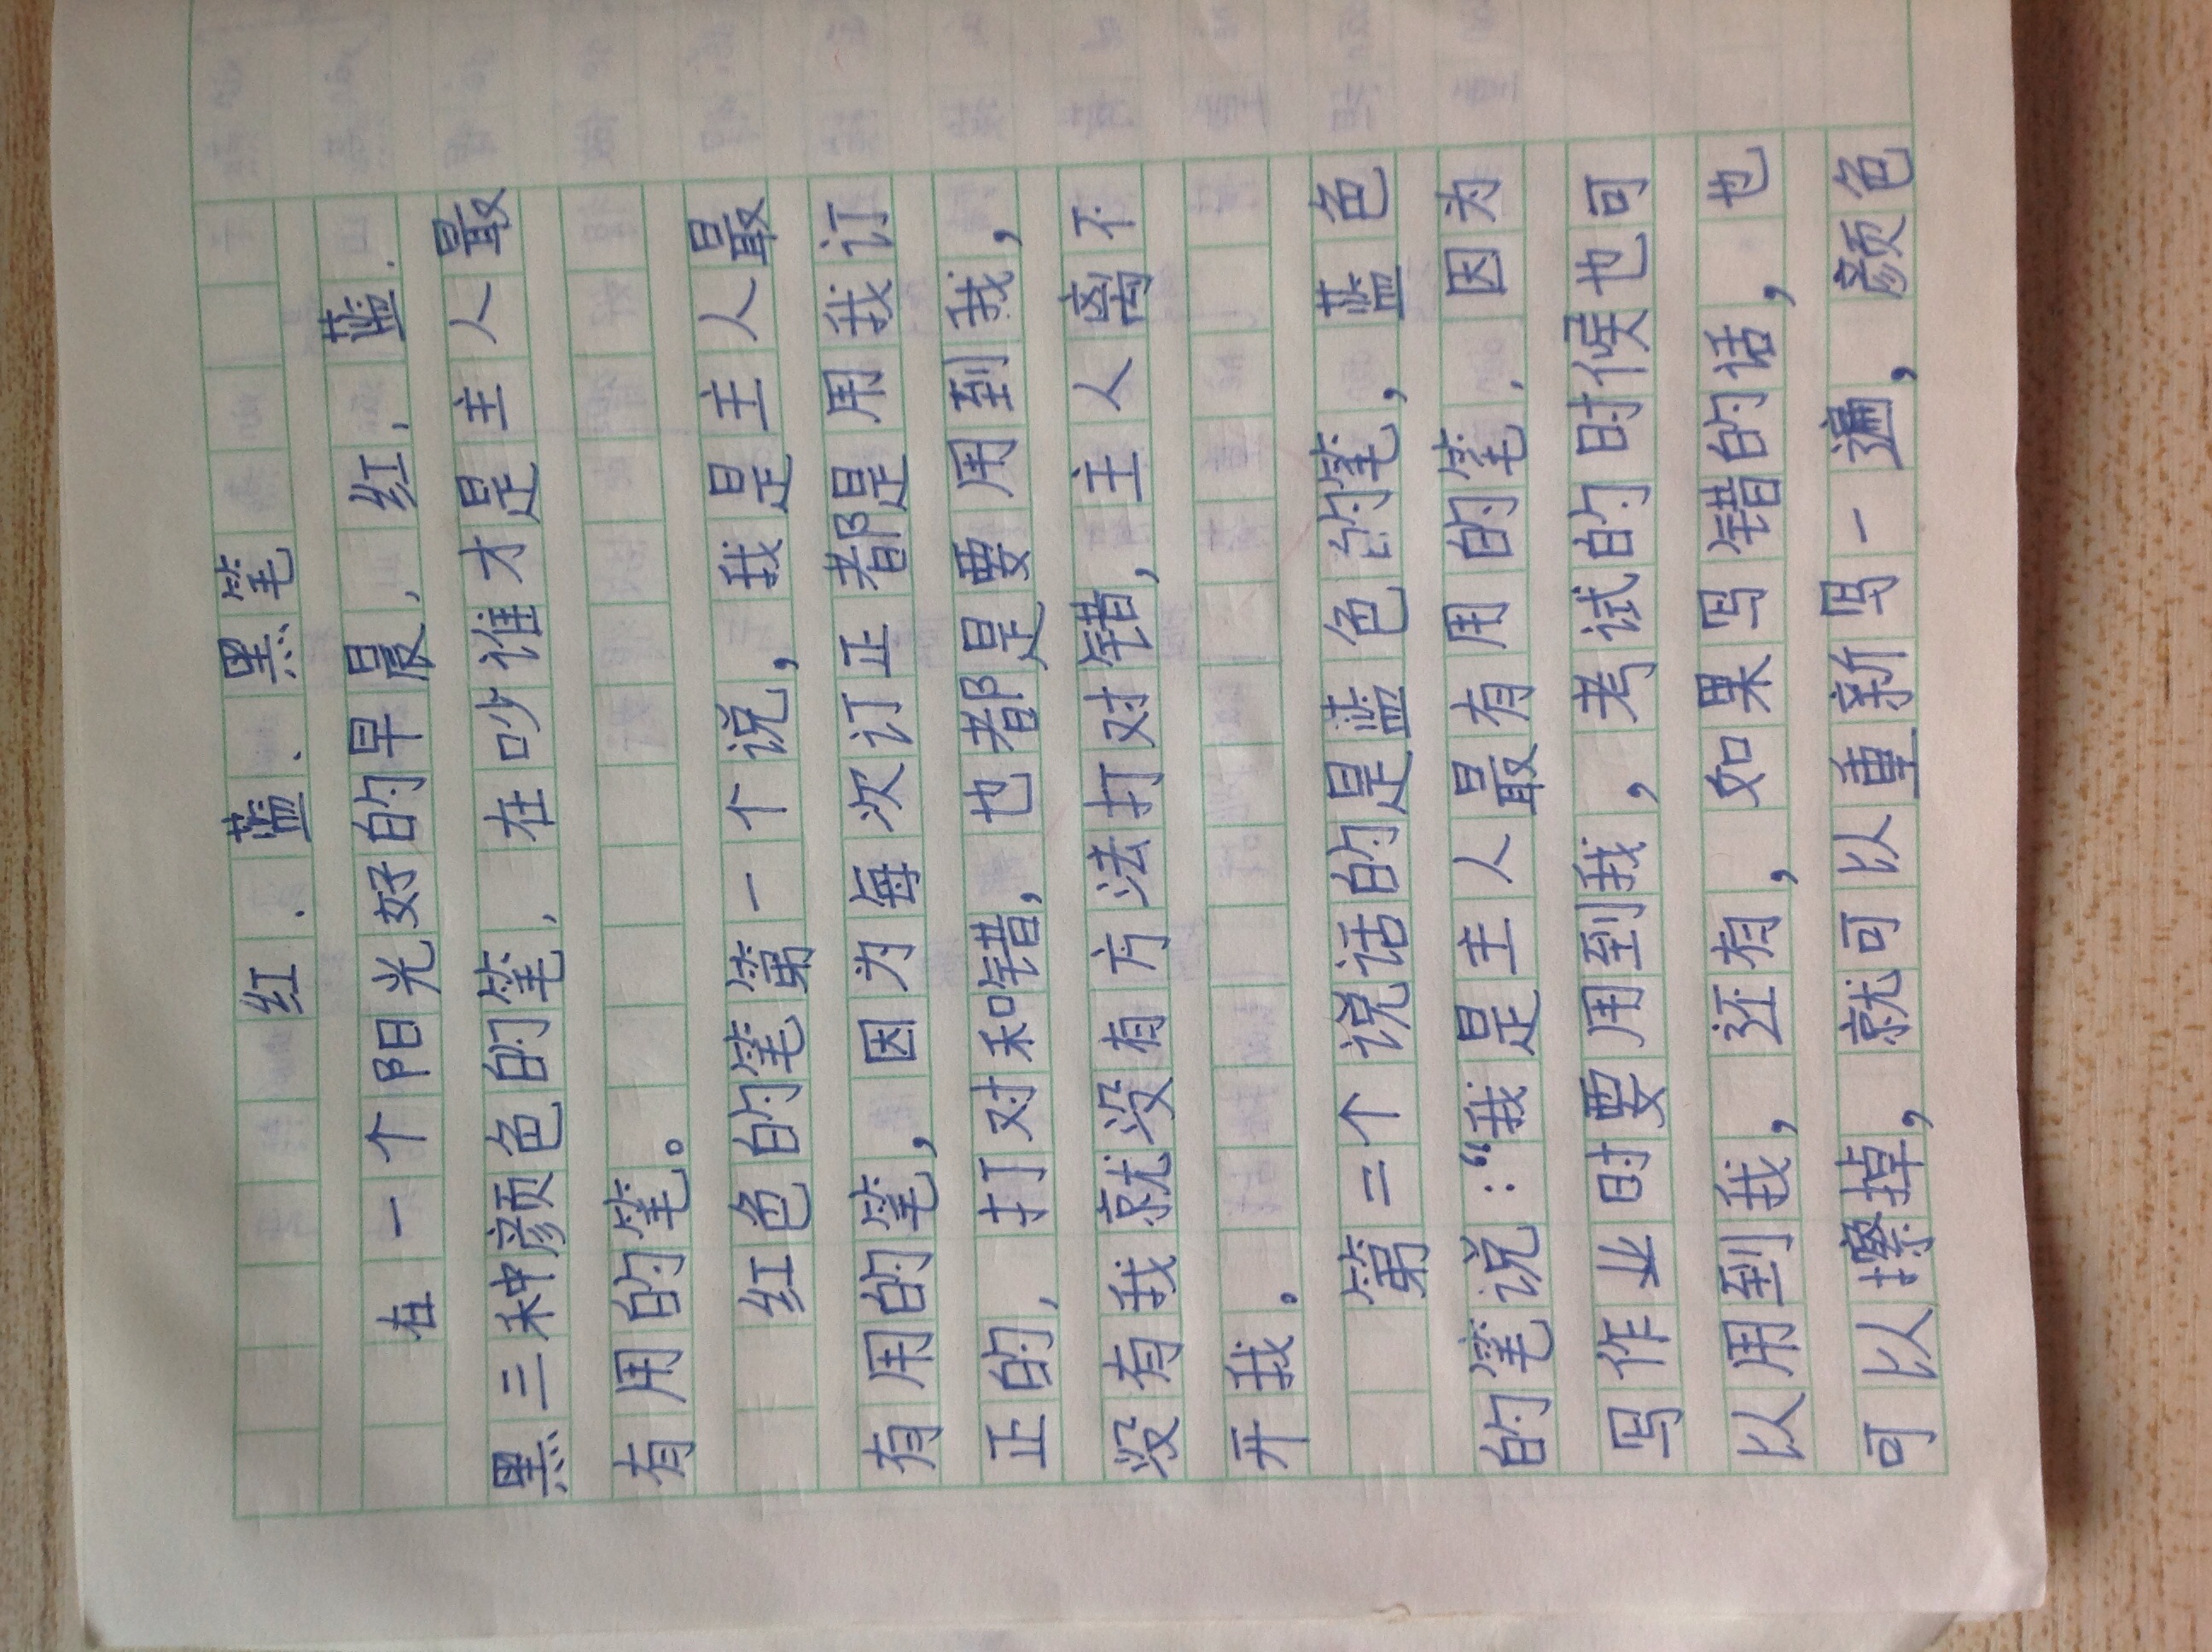 红、蓝、黑笔
在一个阳光好的早晨，红，蓝.
黑三种颜色的笔，在吵谁才是主人最
有用的笔。
红色的笔第一个说，我是主人最
有用的笔，因为每次订正都是用我订
正的，打对和错，也都是要用到我，
没有我就没有方法打对错，主人离不
开我。
第二个说话的是蓝色的笔，蓝色
的笔说：“我是主人最有用的笔，因为
写作业时要用到我，考试的时候也可
以用到我，还有，如果写错的话，也
可以擦掉，就可以重新写一遍，颜色